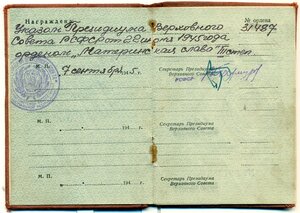 Награждена
№ ордена
Указом Президиума Верховного
31487
Совета РСФСР от 28 1945 года
орденом „Материнская слава" степ.
М. П.
7 сентября 1945 г.
Секретарь Президиума
Верховного Совета
М. П.
194 г.
Секретарь Президиума
Верховного Совета
М. П.
194 г.
Секретарь Президиума
Верховного Совета